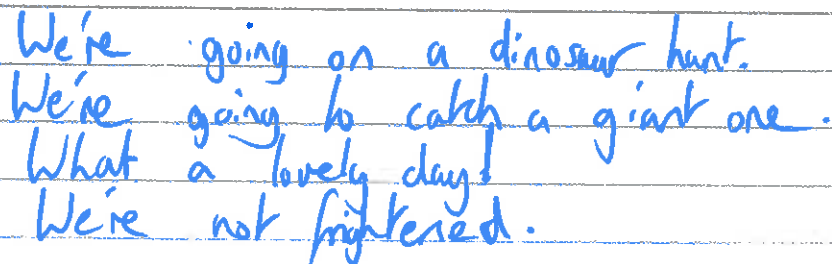 We're going on a dinosaur hunt.
We're going to catch a giant one.
What a lovely day!
We're not frightened.